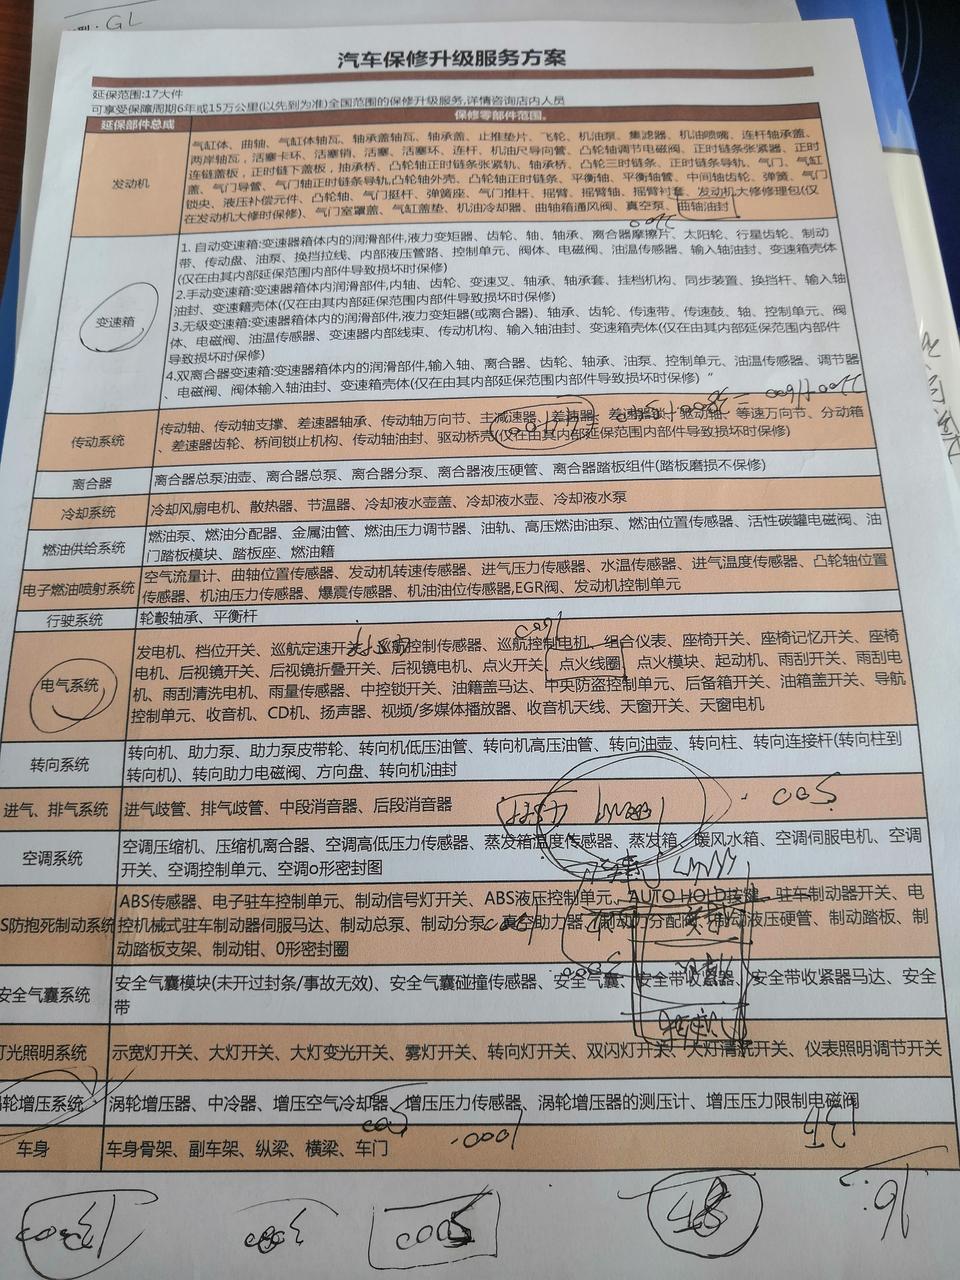 GL
汽车保修升级服务方案
延保范围:17大件
可享受保障周期6年或15万公里(以先到为准)全国范围的保修升级服务,详情咨询店内人员
延保部件总成
保修零部件范围。
发动机
气缸体、曲轴、气缸体轴瓦、轴承盖轴瓦、轴承盖、止推垫片、飞轮、机油泵、集滤器、机油喷嘴、连杆轴承盖、
两岸轴瓦，活塞卡环、活塞销、活塞、活塞环、连杆、机油尺导向管、凸轮轴调节电磁阀、正时链条张紧器、正时
连链盖板，正时链下盖板，抽承桥、凸轮轴正时链条张紧轨、轴承桥、凸轮三时链条、正时链条导轨、气门、气缸
盖、气门导管、气门轴正时链条导轨,凸轮轴外壳、凸轮轴正时链条、平衡轴、平衡轴管、中间轴齿轮、弹簧、气门
锁央、液压补偿元件、凸轮轴、气门挺杆、弹簧座、气门推杆、摇臂、摇臂轴、摇臂衬套、发动机大修修理包(仅
在发动机大修时保修)、气门室罩盖、气缸盖垫、机油冷却器、曲轴箱通风阀、真空泵、曲轴油封
变速箱
1. 自动变速箱:变速器箱体内的润滑部件,液力变矩器、齿轮、轴、轴承、离合器摩擦片、太阳轮、行星齿轮、制动
带、传动盘、油泵、换挡拉线、内部液压管路、控制单元、阀体、电磁阀、油温传感器、输入轴油封、变速箱壳体
(仅在由其内部延保范围内部件导致损坏时保修)
2.手动变速箱:变速器箱体内润滑部件,内轴、齿轮、变速叉、轴承、轴承套、挂档机构、同步装置、换挡杆、输入轴
油封、变速箱壳体(仅在由其内部延保范围内部件导致损坏时保修)
3.无级变速箱:变速器箱体内的润滑部件,液力变矩器(或离合器)、轴承、齿轮、传速带、传速鼓、轴、控制单元、阀
体、电磁阀、油温传感器、变速器内部线束、传动机构、输入轴油封、变速箱壳体(仅在由其内部延保范围内部件
导致损坏时保修)
4.双离合器变速箱:变速器箱体内的润滑部件,输入轴、离合器、齿轮、轴承、油泵、控制单元、油温传感器、调节器
、电磁阀、阀体输入轴油封、变速箱壳体(仅在由其内部延保范围内部件导致损坏时保修) ”
传动系统
传动轴、传动轴支撑、差速器轴承、传动轴万向节、主减速器、差速器、差速器锁、驱动轴、等速万向节、分动箱
、差速器齿轮、桥间锁止机构、传动轴油封、驱动桥壳(仅在由其内部延保范围内部件导致损坏时保修)
离合器
离合器总泵油壶、离合器总泵、离合器分泵、离合器液压硬管、离合器踏板组件(踏板磨损不保修)
冷却系统
冷却风扇电机、散热器、节温器、冷却液水壶盖、冷却液水壶、冷却液水泵
燃油供给系统
燃油泵、燃油分配器、金属油管、燃油压力调节器、油轨、高压燃油油泵、燃油位置传感器、活性碳罐电磁阀、油
门踏板模块、踏板座、燃油箱
电子燃油喷射系统
空气流量计、曲轴位置传感器、发动机转速传感器、进气压力传感器、水温传感器、进气温度传感器、凸轮轴位置
传感器、机油压力传感器、爆震传感器、机油油位传感器,EGR阀、发动机控制单元
行驶系统
轮毂轴承、平衡杆
电气系统
发电机、档位开关、巡航定速开关、巡航控制传感器、巡航控制电机、组合仪表、座椅开关、座椅记忆开关、座椅
电机、后视镜开关、后视镜折叠开关、后视镜电机、点火开关、点火线圈、点火模块、起动机、雨刮开关、雨刮电
机、雨刮清洗电机、雨量传感器、中控锁开关、油箱盖马达、中央防盗控制单元、后备箱开关、油箱盖开关、导航
控制单元、收音机、CD机、扬声器、视频/多媒体播放器、收音机天线、天窗开关、天窗电机
转向系统
转向机、助力泵、助力泵皮带轮、转向机低压油管、转向机高压油管、转向油壶、转向柱、转向连接杆(转向柱到
转向机)、转向助力电磁阀、方向盘、转向机油封
进气、排气系统
进气歧管、排气歧管、中段消音器、后段消音器
空调系统
空调压缩机、压缩机离合器、空调高低压力传感器、蒸发箱温度传感器、蒸发箱、暖风水箱、空调伺服电机、空调
开关、空调控制单元、空调o形密封图
S防抱死制动系统
ABS传感器、电子驻车控制单元、制动信号灯开关、ABS液压控制单元、AUTO HOLD按键、驻车制动器开关、电
控机械式驻车制动器伺服马达、制动总泵、制动分泵、真空助力器、制动力分配阀、制动液压硬管、制动踏板、制
动踏板支架、制动钳、O形密封圈
安全气囊系统
安全气囊模块(未开过封条/事故无效)、安全气囊碰撞传感器、安全气囊、安全带收紧器、安全带收紧器马达、安全
带
灯光照明系统
示宽灯开关、大灯开关、大灯变光开关、雾灯开关、转向灯开关、双闪灯开关、大灯清洗开关、仪表照明调节开关
涡轮增压系统
涡轮增压器、中冷器、增压空气冷却器、增压压力传感器、涡轮增压器的测压计、增压压力限制电磁阀
车身
车身骨架、副车架、纵梁、横梁、车门